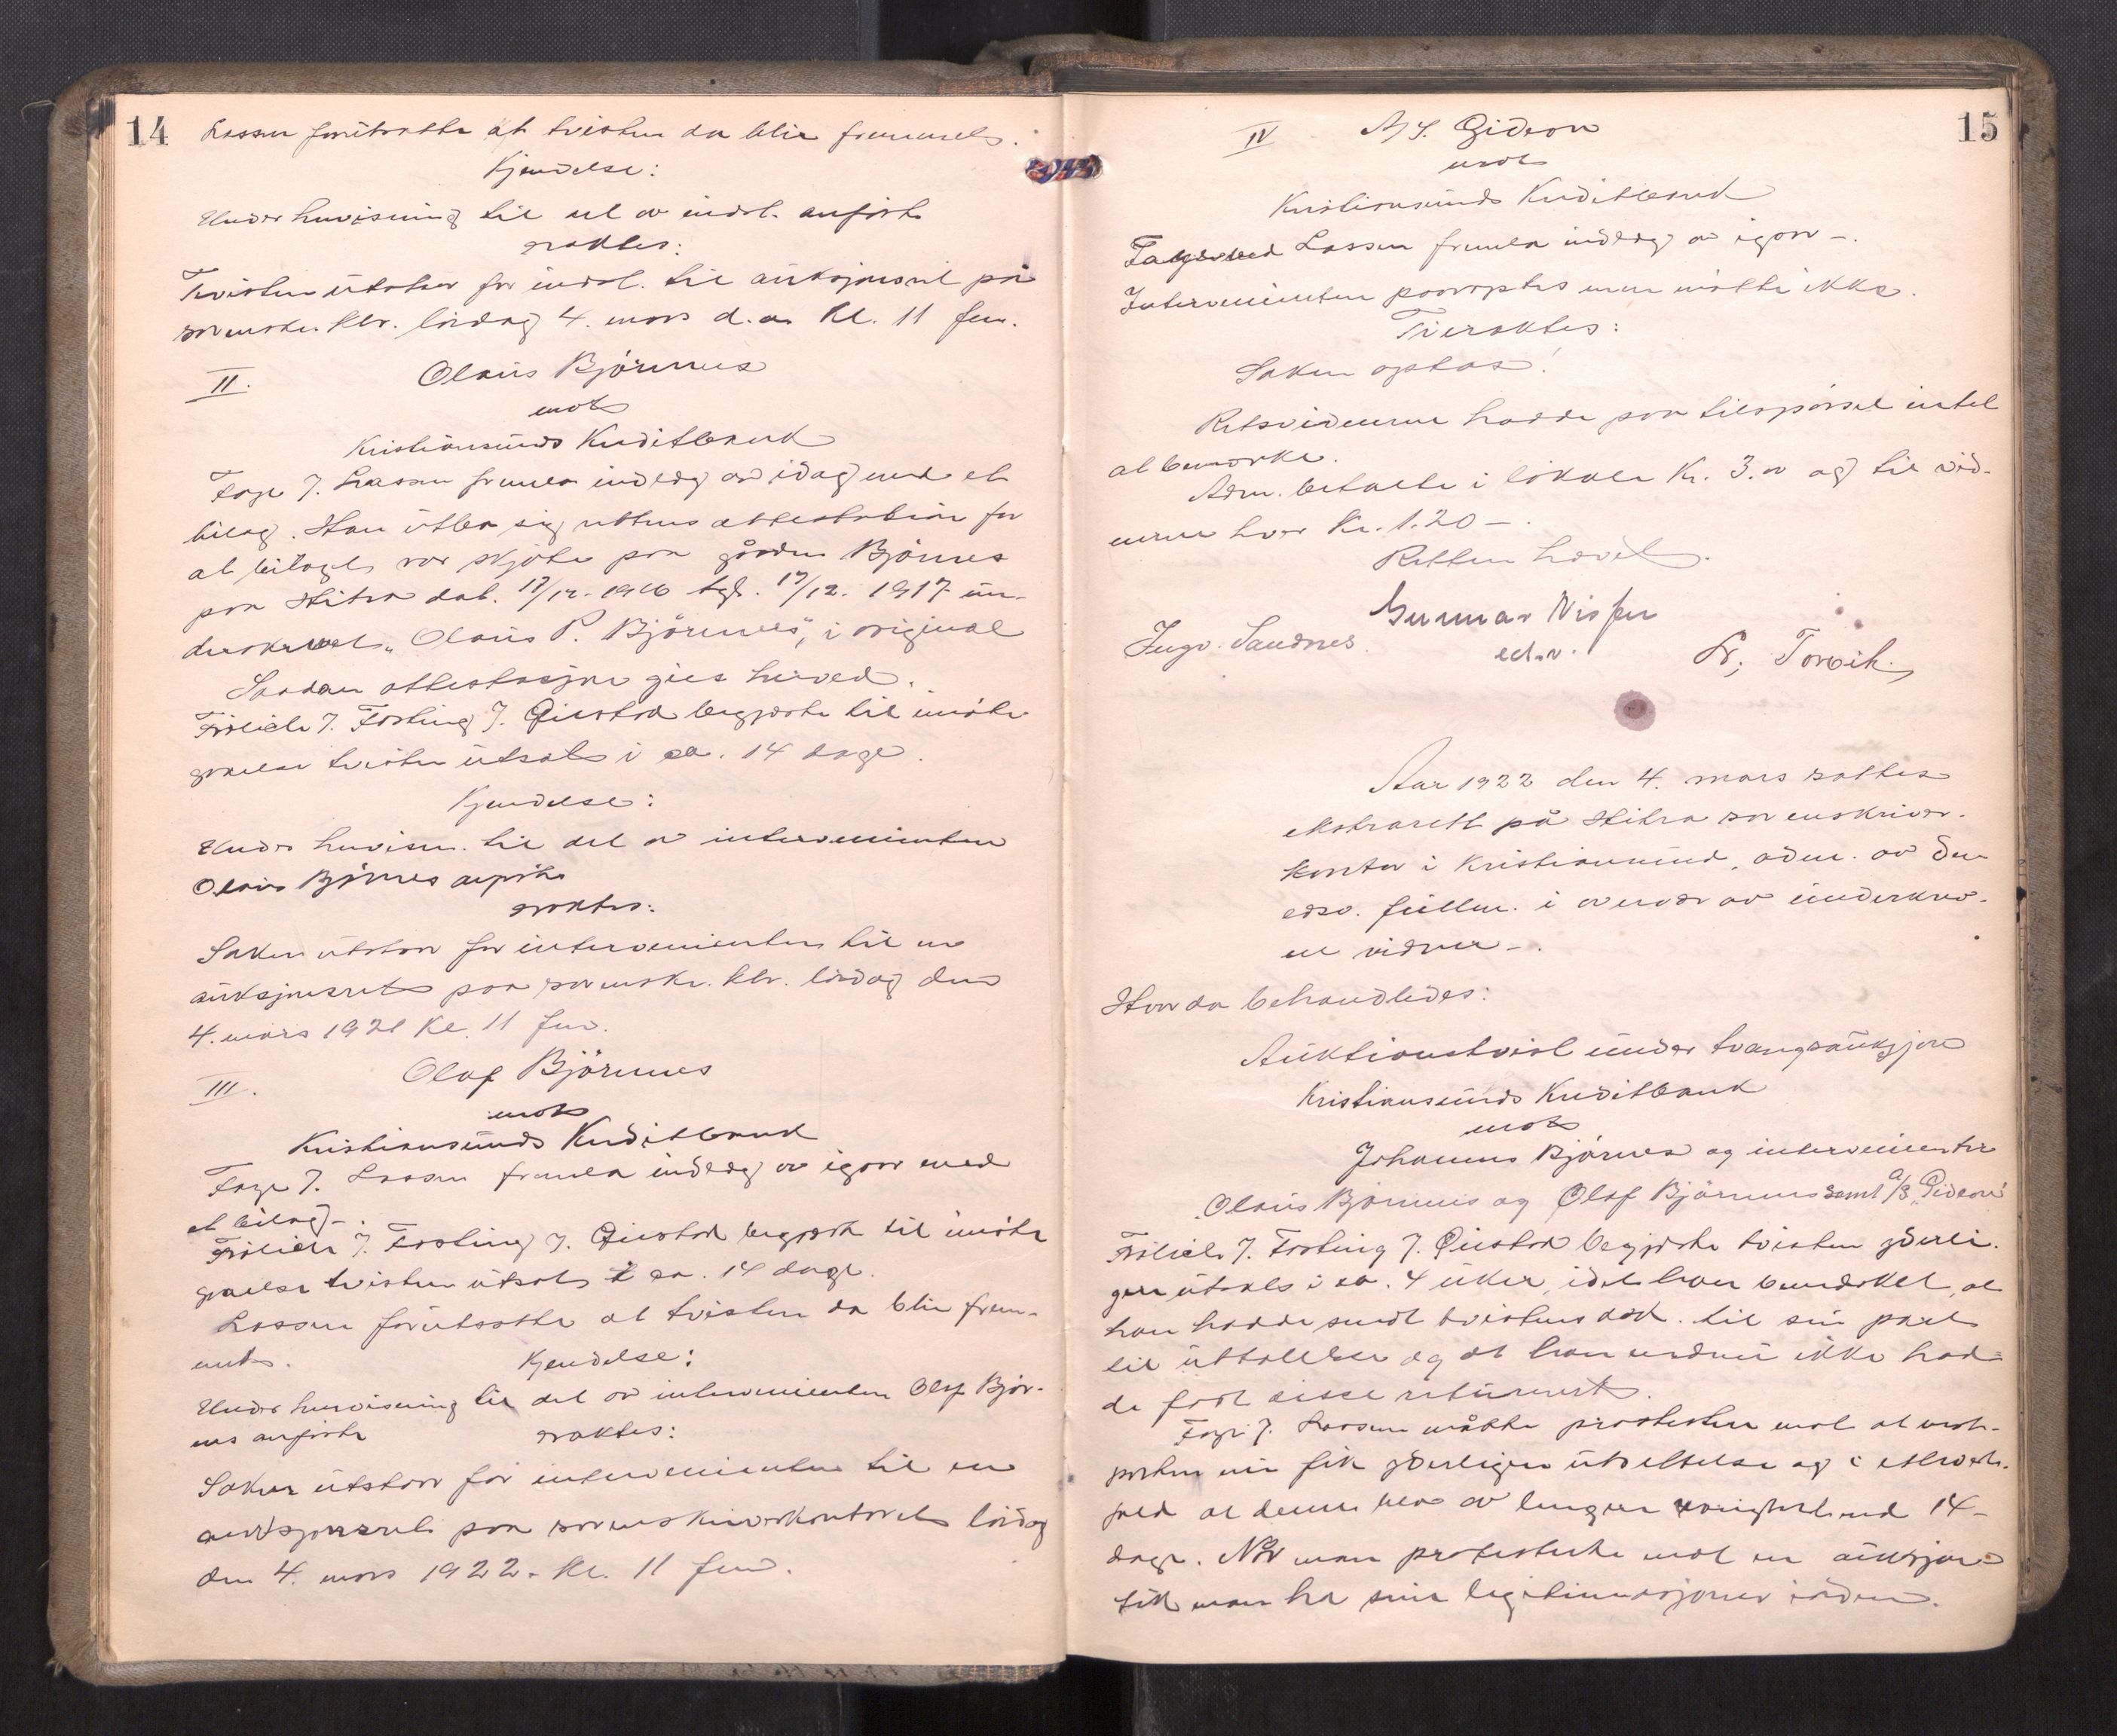 14
Lassen forutsatte at tvisten da blir fremmet.
Kjendelse:
Under henvisning til det av indst. anførte
vaktes:
Tvisten utstaar for indst. til auksjonsret på
sorenskr. ktr. lørdag 4. mars d.a. kl. 11 fm.
II. Olaüs Björnnes
mot
Kristiansünds Kreditbank
Lassen fremla indlæg av idag med et
bilag. Han utba sig rettens attestation for
at bilaget var skjøte paa gården Björnes
paa Hitra dat. 17/12-1916 tgl. 17/12. 1917 ün-
derskrevet "Olaüs P. Björnnes", i original
Saadan attestasjon gies herved.
Frölich f. Fosting f. Qvistad begjærte til imöte
gaaelse tvisten ütsat i ca. 14 dage.
Kjendelse:
Under henvisn. til det av intervenienten
Olaüs Björnes anførte
vaktes:
Saken ütstaar for intervenienten til en
auksjonsret paa sorenskr. ktr. lördag den
4. mars 1921 kl. 11 fm.
III. Olaf Björnnes
mot
Kristiansünds Kreditbank
Lassen fremla indlæg av igaar med
et bilag -.
Frölich f. Fosting f. Qvistad begjærte til imöte
gaaelse tvisten ütsat i ca. 14 dage.
Lassen forütsatte at tvisten da blir frem-
met.
Kjendelse:
Under henvisning til det av intervenienten Olaf Björ-
nes anförte
vaktes:
Saken ütstaar for intervenienten til en
auksjonsret paa sorenskriverkontoret lördag
den 4. mars 1922. kl. 11 fm.
15
IV A/S. Gideon
mot
Kristiansünds Kreditbank
Lassen fremla indlæg av igaar -.
Intervenienten paaroptes men mötte ikke.
Saken optas!
Retsvidnerne hadde paa tilspörsel intet
at bemerke.
Adm. betalte i lokale Kr. 3.00 og til vid-
nerne hver Kr. 1.20 -.
Retten hævet.
Gunnar Nissen
ed.v.
Ingv. Sandnes.
Torvik
Aar 1922 den 4. mars sattes
ekstrarett på Hitra sorenskriver-
kontor i Kristiansünd, adm. av den
edsv. füllm. i overvær av ünderskrev-
ne vidner -.
Hvor da behandledes:
Auktionstvist ünder tvangsaüksjon
Kristiansünds Kreditbank
mot
Johannes Björnes og intervenienter
Olaüs Björnnes og Olaf Björnnes samt A/S "Gideon"
Frölich f. Fosting f. Qvistad begjærte tvisten yderli-
gere ütsat i ca. 4 üker, idet han bemerket, at
han hadde sendt tvistens dok. til sin part
til üttalelse og at han endnü ikke had-
de faat disse returnert.
Lassen måtte protestere mot at mot-
parten nü fik yderligere ütsettelse og i ethvert-
fald at denne blev av lengere varighet end 14-
dage. Når man protesterte mot en aüksjon
fik man ha sine legitimasjoner iorden.